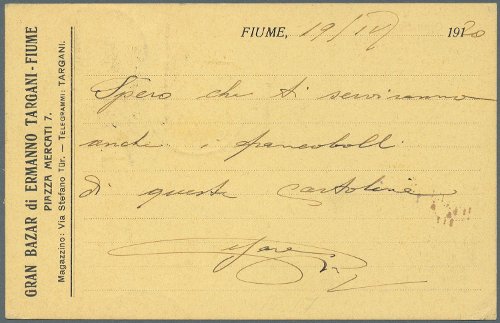 GRAN BAZAR di ERMANNO TARGANI - FIUME
PIAZZA MERCATI 7.
Magazzino: Via Stefano Tür. — TELEGRAMMI: TARGANI.
FIUME, 19/IV 1920
Spero che ti serviranno
anche i francobolli
di queste cartoline